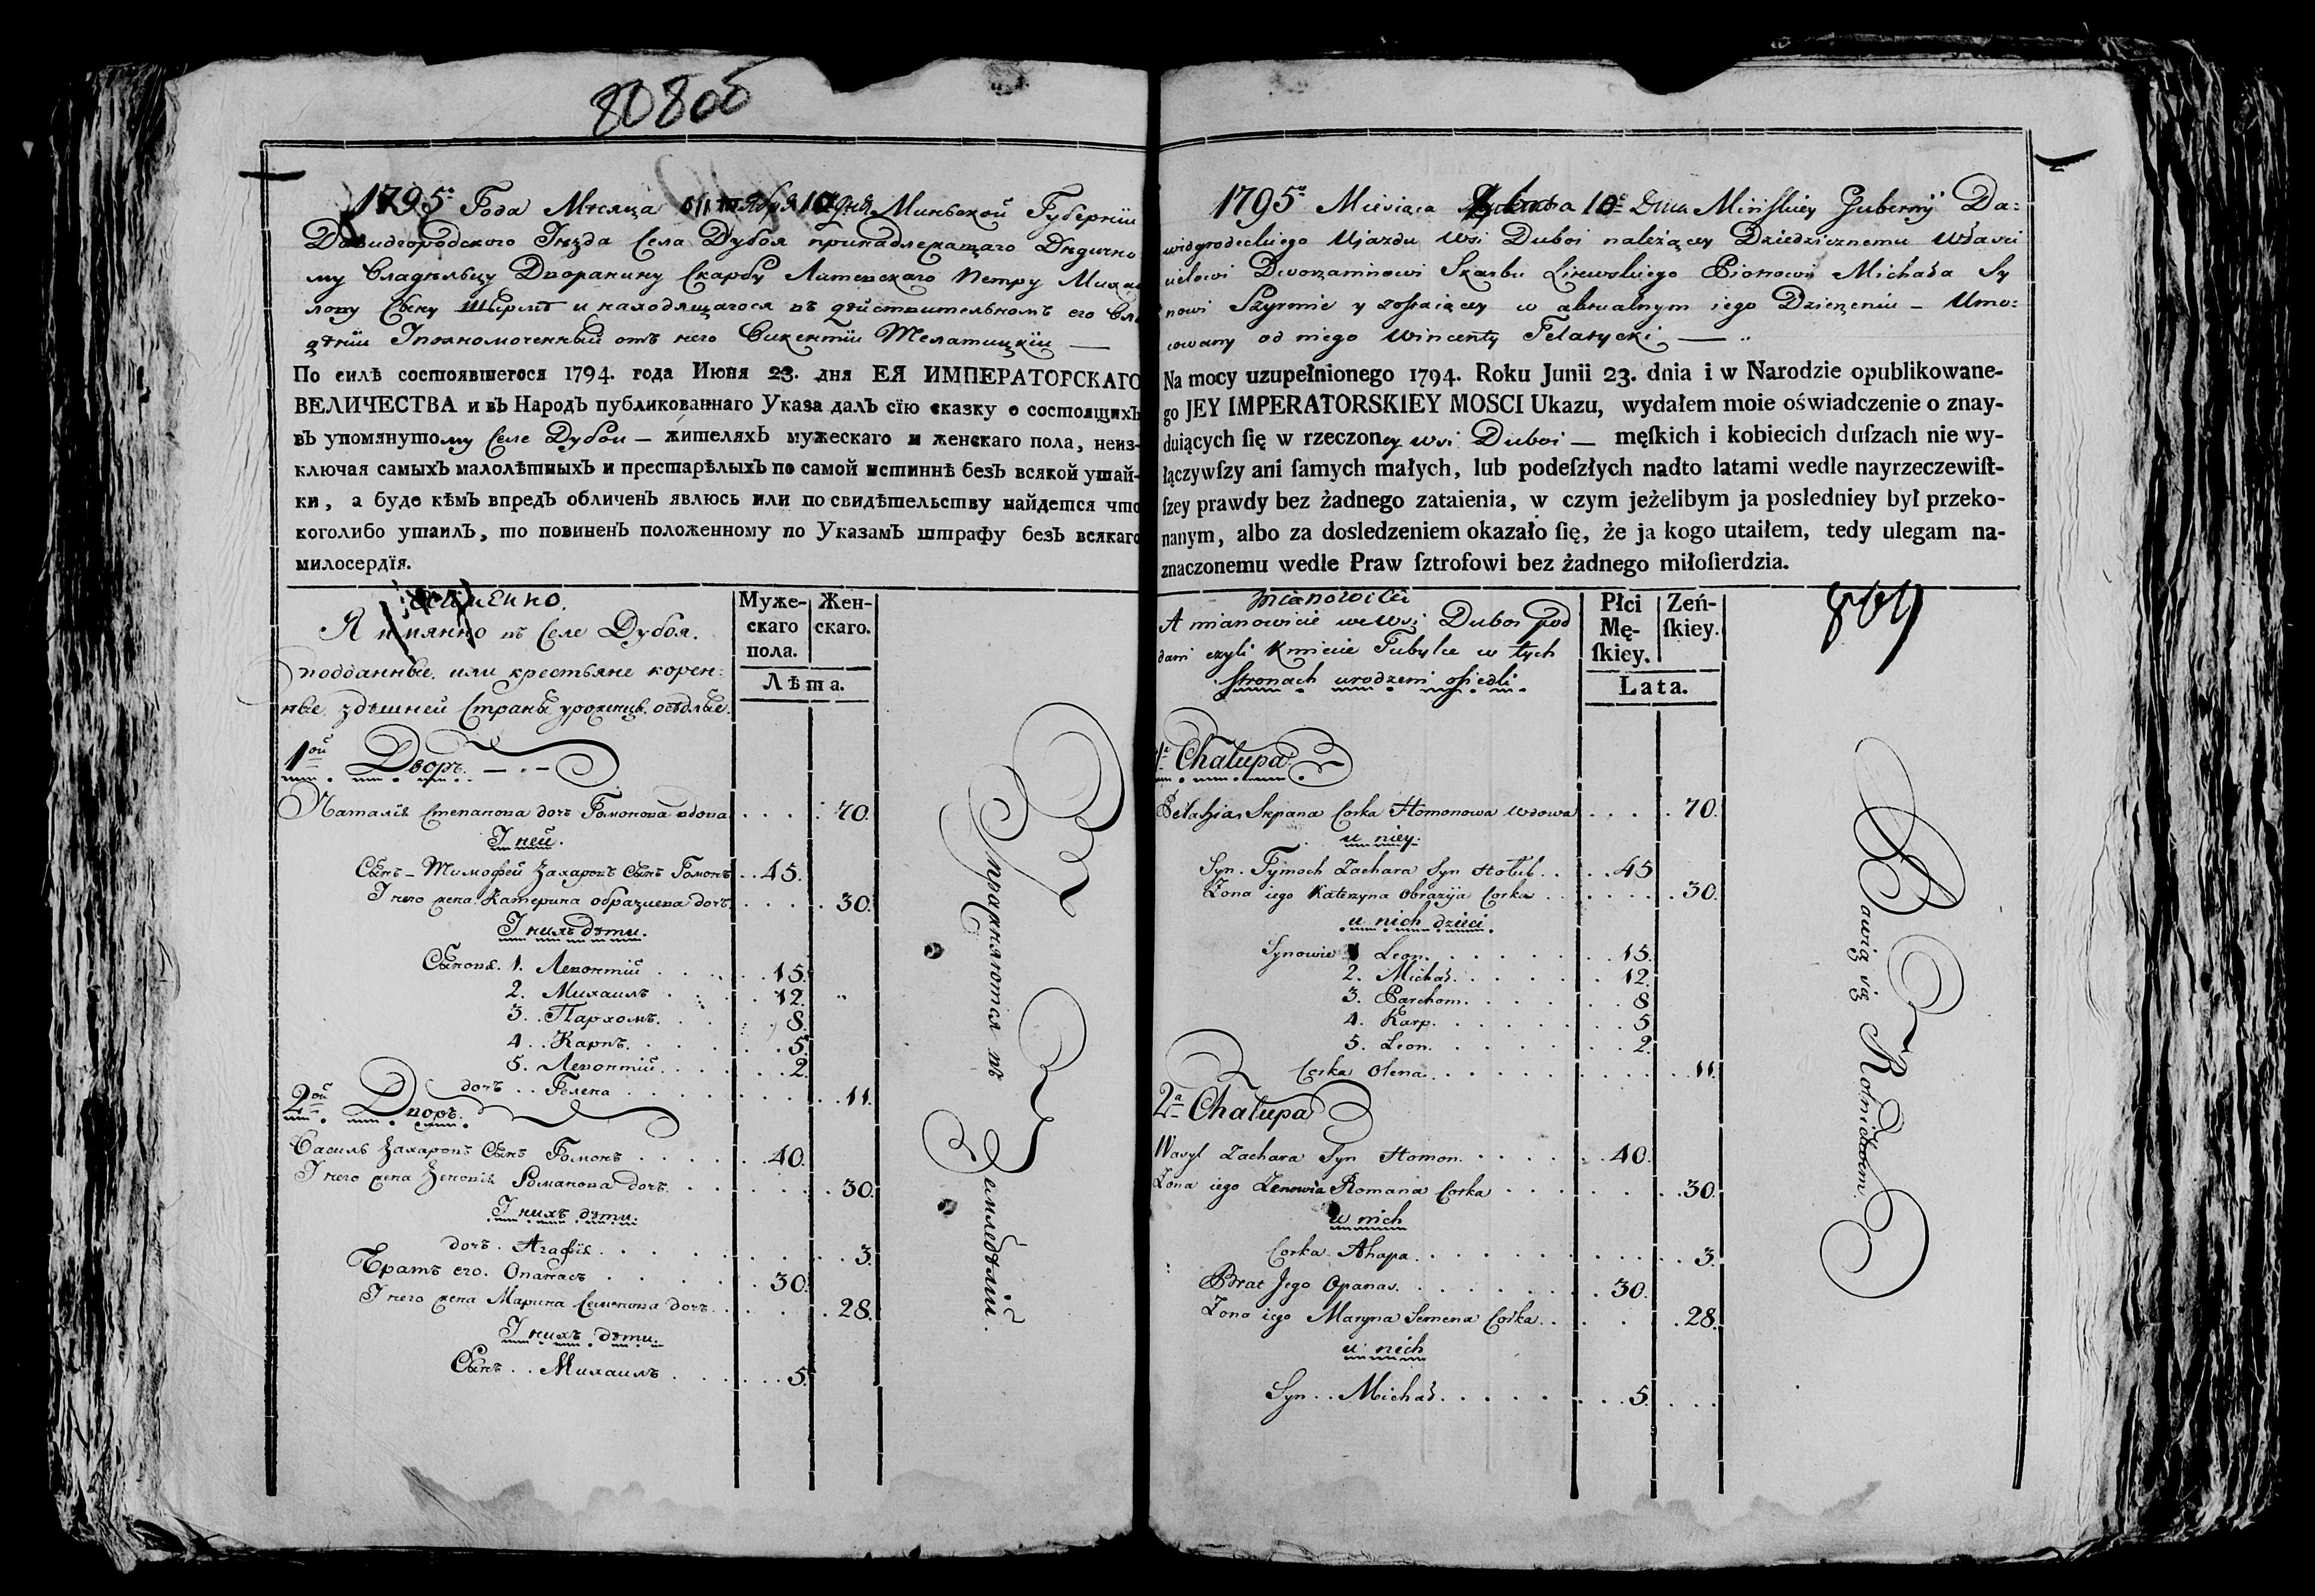 808об
1795го Года Мѣсяца Октября 10 дня Миньской Губерніи
Давидгородского Іѣзда Села Дубоя принадлежащаго Дѣдично
му Владѣльцу Дворанину Скарбу Литевскаго Петру Миха
лову Сыну Ширмѣ и находящагося въ дѣйствительномъ его Вла
дѣніи Іполномоченный отъ него Викентіи Телатицкіи —
По силѣ состоявшегося 1794. года Июня 23. дня ЕЯ ИМПЕРАТОРСКАГО
ВЕЛИЧЕСТВА и въ Народъ публикованнаго Указа далъ сїю сказку о состоящихъ
въ упомянутому Селе Дубои — жителяхъ мужескаго и женскаго пола, неиз-
ключая самыхъ малолѣтныхъ и престарѣлыхъ по самой истиннѣ безъ всякой утай-
ки, а буде кѣмъ впредъ обличенъ явлюсь или по свидѣтельству найдется что
коголибо утаилъ, то повиненъ положенному по Указамъ штрафу безъ всякаго
милосердїя.
А имянно въ Селе Дубоя.
подданные или крестьяне корен:
ные здѣшней Страны уроженцы осѣдлые.
Муже-
скаго
пола.
Жен-
скаго.
Лѣта.
1ой Дворъ. — . —
Наталія Степанова дочъ Гомонова вдова . . . 70.
І ней.
Сынъ — Тимофей Захаровъ Сынъ Гомонъ . . 45.
І него жена Катерина образиева дочъ . . . 30.
І нихъ дѣти.
Сыновя. 1. Левонтій . . . 15.
2. Михаилъ . . 12.
3. Пархомъ. . . 8.
4. Карпъ. . . 5.
5. Левонтій . . . 2.
дочъ . . Гелена . . . 11.
2ой Дворъ.
Василь Захаровъ Сынъ Гомонъ . . . 40.
І него жена Зеновія Романова дочъ. . . 30.
І нихъ дѣти.
дочъ . Агафія . . . 3.
Братъ его. Опанасъ . . . 30.
І него жена Марина Семенова дочъ. . . 28.
І нихъ дѣти.
Сынъ . . Михаилъ . . . 5.
Упражняются въ Земледѣліи.
1795o Miesiąca 10o Dnia Mińskiey Guberny Da:
widgrodeckiego Ujazdu wsi Duboi należącey Dziedzicznemu Właści
cielowi Dworzaninowi Skarbu Litewskiego Piotrowi Michała Sy
nowi Szyrmie y zostaiącey w aktualnym iego Dzierzeniu — Umo:
cowany od niego Wincenty Telatycki — ..
Na mocy uzupełnionego 1794. Roku Junii 23. dnia i w Narodzie opublikowane-
go JEY IMPERATORSKIEY MOSCI Ukazu, wydałem moie oświadczenie o znay-
duiących ſię w rzeczoney wsi Duboi — męſkich i kobiecich duſzach nie wy-
łączywſzy ani ſamych małych, lub podeſzłych nadto latami wedle nayrzeczewiſt-
ſzey prawdy bez żadnego zataienia, w czym jeżelibym ja posłedniey był przeko-
nanym, albo za dosledzeniem okazało ſię, że ja kogo utaiłem, tedy ulegam na-
znaczonemu wedle Praw ſztrofowi bez żadnego miłoſierdzia.
mianowicie
A mianowicie we wsi Duboi pod
dani czyli Kmiecie Tubylce w tych
Stronach urodzeni osiedli.
Płci
Mę-
ſkiey.
Zeń-
ſkiey.
Lata.
1a Chałupa
Pełahia Stepana Corka Homonowa wdowa . . . 70.
u niey.
Syn. Tymoch Zachara Syn . . . 45
Zona iego Katerzyna Obrazyja Corka . . . 30.
u nich dzieci.
Synowie 1 Leon. . . . 15.
2. Michał. . . . 12.
3. Parchom. . . . 8
4. Karp. . . . 5
5. Leon. . . . 2.
Corka Olena. . . . 11.
2a Chałupa
Wasyl Zachara Syn Homon. . . . 40.
Zona iego Zenowia Romana Corka . . . 30.
u nich
Corka Ahapa. . . . 3.
Brat Jego Opanas. . . . 30.
Zona iego Maryna Semena Corka. . . . 28.
u nich
Syn . . Michał. . . . 5.
Bawią się Rolnictwem.